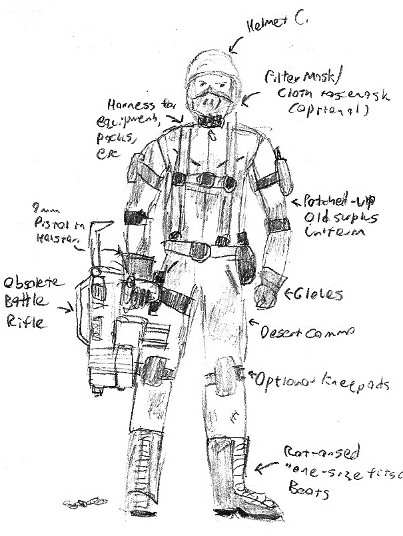 Helmet C.
Filter Mask/
Cloth facemask
(optional)
Harness for
equipment,
packs,
etc
Patched-up
Old surplus
Uniform
9mm
Pistol in
Holster
Obsolete
Battle
Rifle
Gloves
Desert Cammo
Optional kneepads
"one-size fits"
Boots